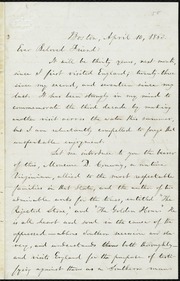 Boston, April 10, 1863.
Dear Beloved Friend:
It will be thirty years, next week,
since I first visited England; twenty-three
since my second, and seventeen since my
last. It has been strongly in my mind to
commemorate the third decade by making
another visit across the water this summer,
but I am reluctantly compelled to forego that
unspeakable enjoyment.
Let me introduce to you the bearer
of this, Moncure D. Conway, a native
Virginian, allied to the most respectable
families in that State, and the author of two
admirable works for the times, entitled "The
Rejected Stone," and "The Golden Hour." He
is all heart and soul in the cause of the
oppressed millions Southern
and understands them both thoroughly,
and visits England for the purpose of testi-
fying against them as a Southern man